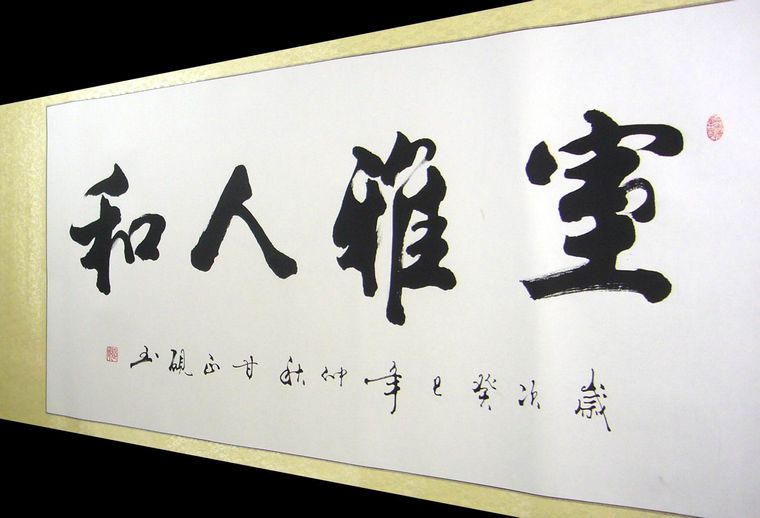 室雅人和
歲次癸巳年仲秋甘正硯書